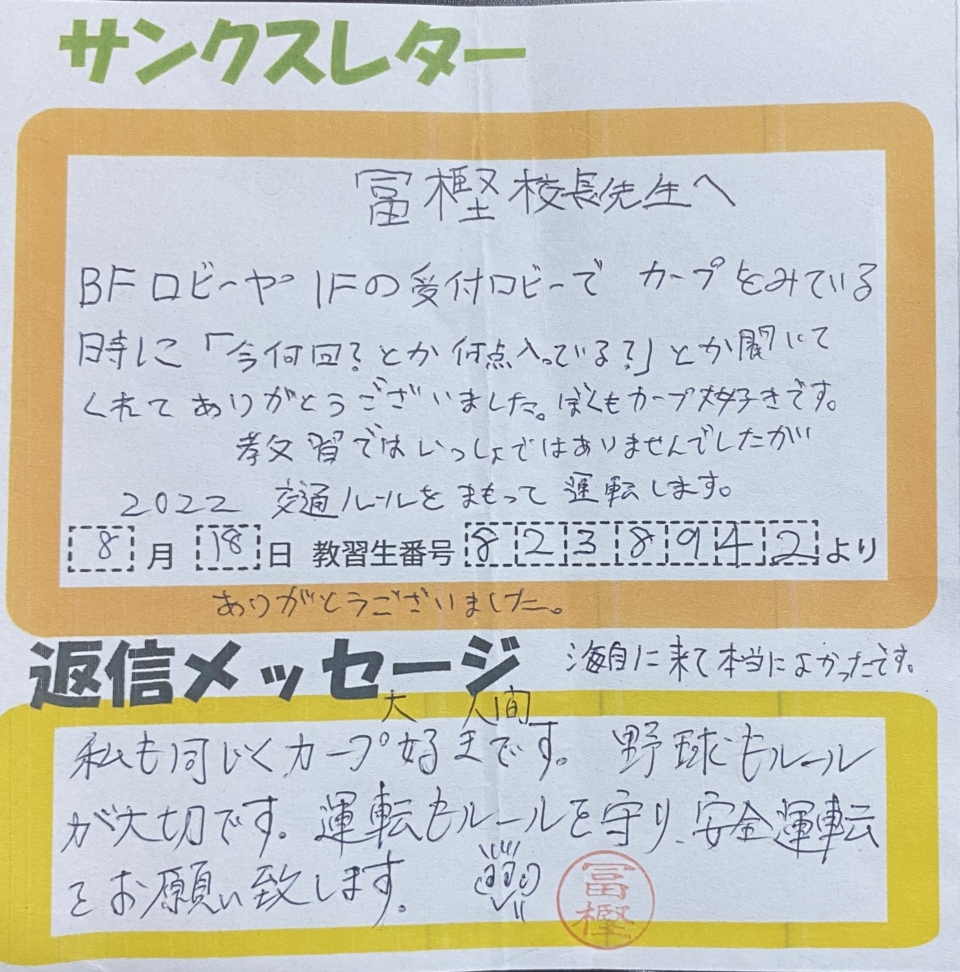 サンクスレター
冨樫校長先生へ
BFロビーや1Fの受付ロビーで カープをみている
時に「今何回?とか何点入っている?」とか聞いて
くれてありがとうございました。ぼくもカープ大好きです。
教習ではいっしょではありませんでしたが
2022 交通ルールをまもって運転します。
8月18日 教習生番号 8238942より
ありがとうございました。
返信メッセージ
海自に来て本当によかったです。
大 人間
私も同じくカープ好きです。野球もルール
が大切です。運転もルールを守り、安全運転
をお願い致します。
冨樫